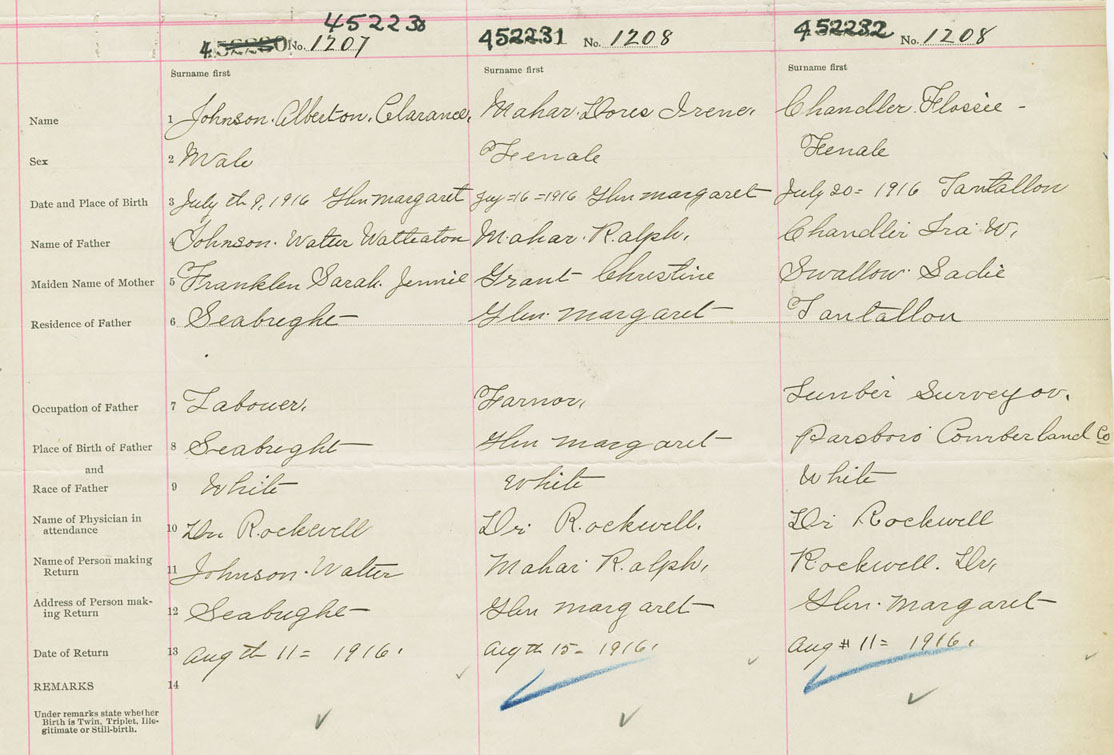 45223
452230 No. 1207 452231 No. 1208 452232 No. 1208
Surname first Surname first Surname first
Name 1 Johnson. Alberton. Clarance. Mahar. Dores Irene. Chandler. Flossie -
Sex 2 Male Female Female
Date and Place of Birth 3 July th 9, 1916 Glen margaret July =16 =1916 Glen margaret July 20= 1916 Tantallon
Name of Father 4 Johnson. Walter Mahar. Ralph. Chandler Ira W.
Maiden Name of Mother 5 Franklen Sarah. Jennie Grant Christine Swallow. Sadie
Residence of Father 6 Seabright Glen. margaret Tantallon
Occupation of Father 7 Labouer. Farmor. Lumber Surveyor.
Place of Birth of Father 8 Seabright Glen margaret Parsboro Comberland Co
and
Race of Father 9 White White White
Name of Physician in
attendance 10 Dr. Rockwell Dr. Rockwell. Dr Rockwell
Name of Person making
Return 11 Johnson. Walter Mahar Ralph. Rockwell. Dr.
Address of Person mak-
ing Return 12 Seabright Glen margaret Glen. Margaret
Date of Return 13 Aug th 11= 1916. Aug th 15= 1916. Aug # 11= 1916.
REMARKS 14
Under remarks state whether
Birth is Twin, Triplet, Ille-
gitimate or Still-birth.